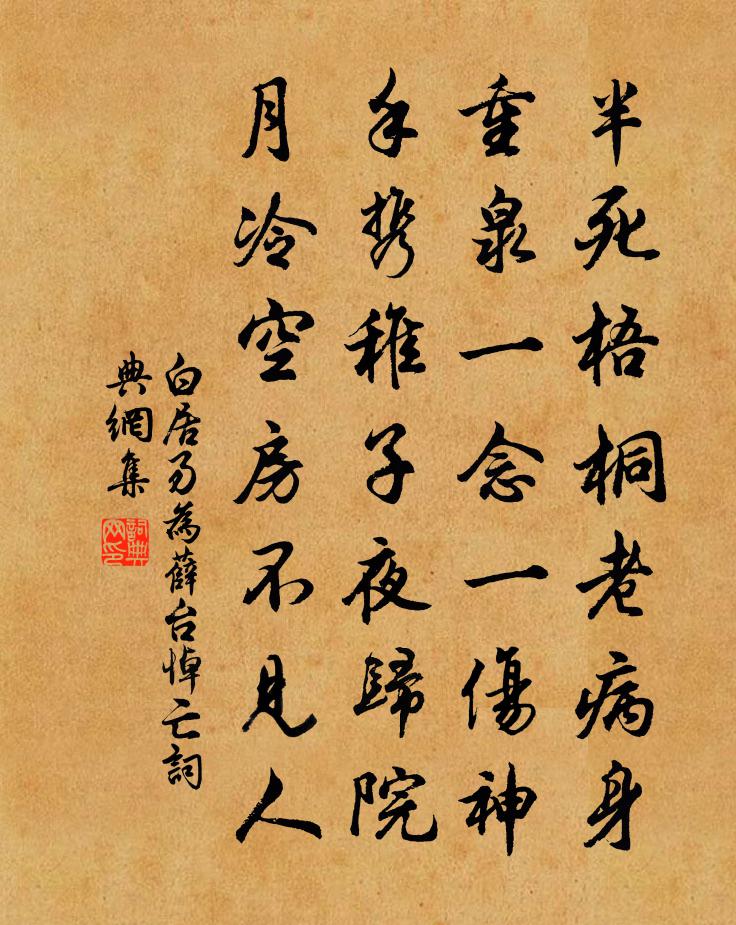 半死梧桐老病身
重泉一念一傷神
手携稚子夜歸院
月冷空房不見人
白居易為薛台悼亡詞
典網集
詞典
网印